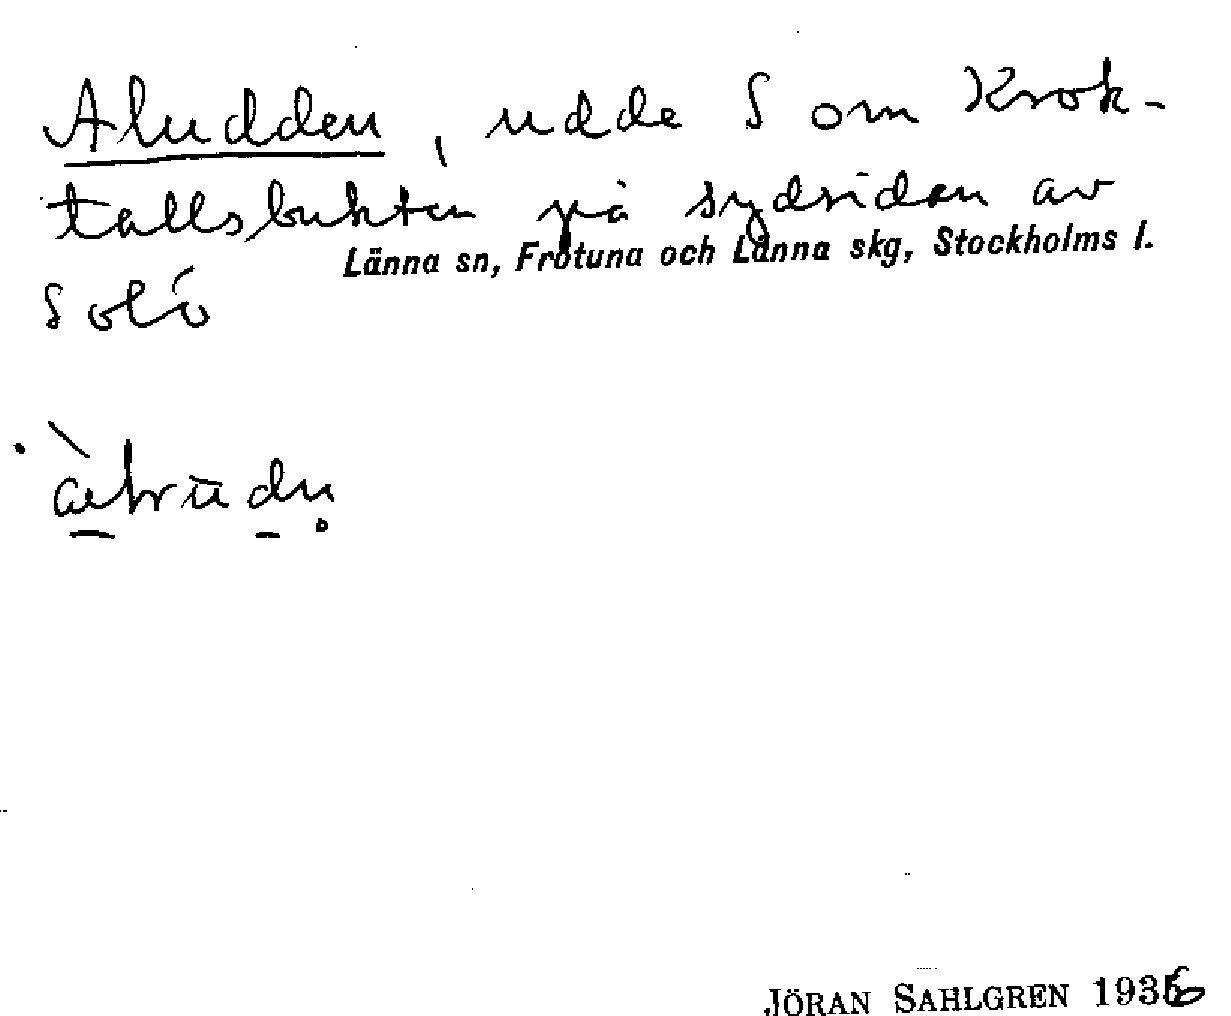 Aludden, udde S om Krok-
tallsbukten på sydsidan av
Länna sn, Frötuna och Länna skg, Stockholms l.
Solö
JÖRAN SAHLGREN 1936